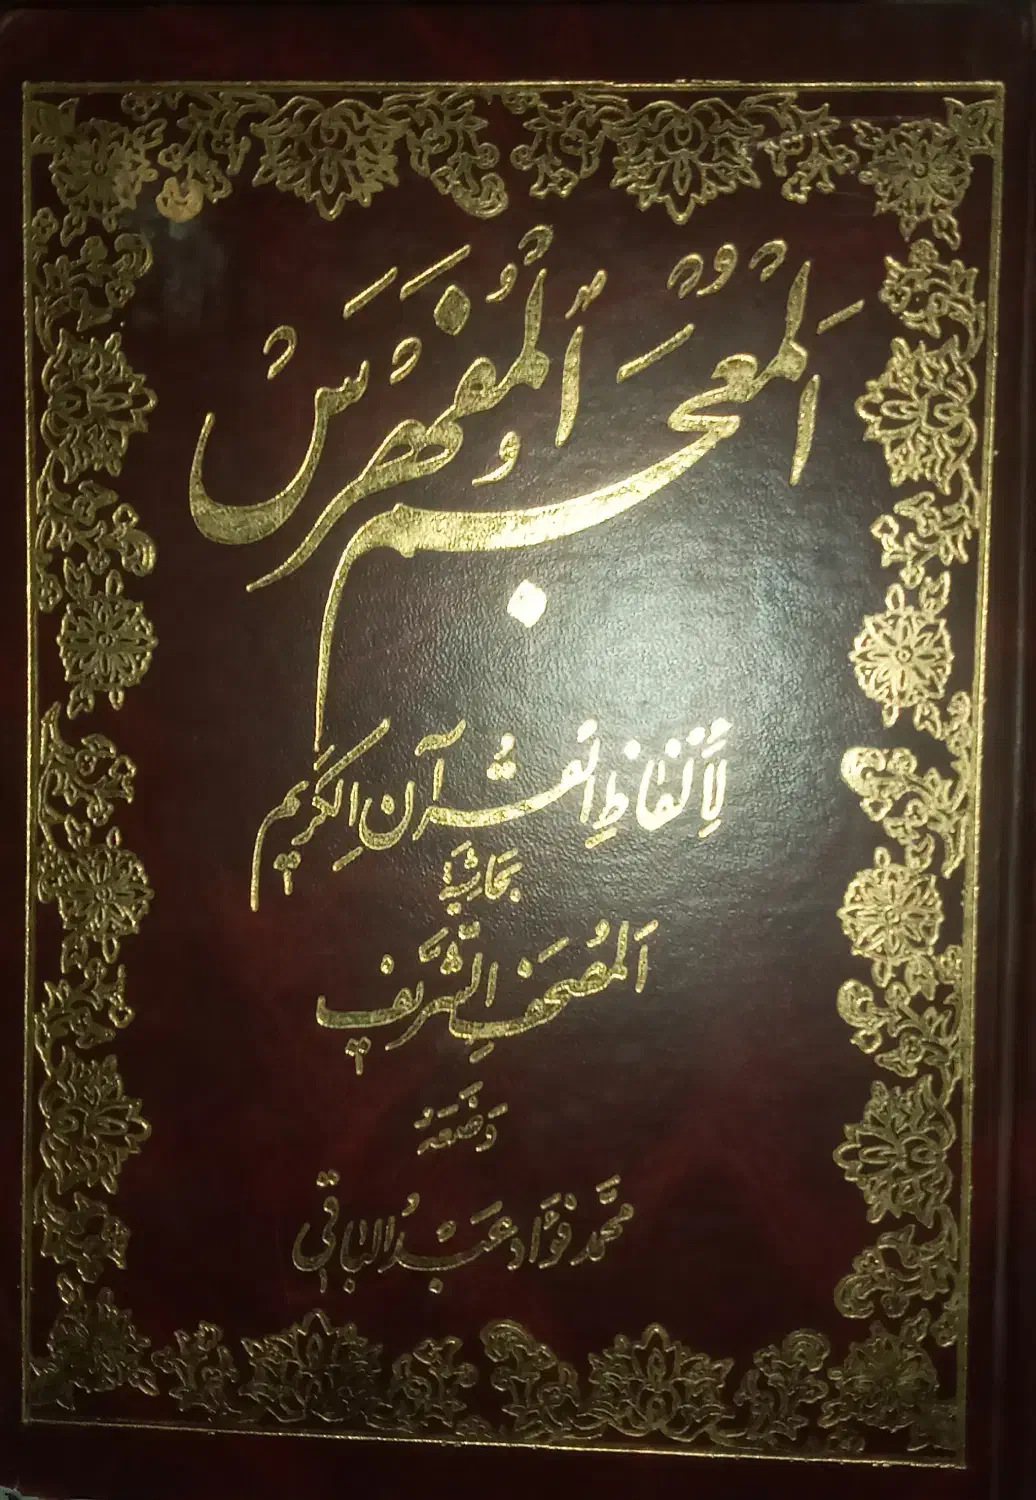 اَلْمُعْجَمُ الْمُفَهْرَسْ
لِأَلْفَاظِ الْقُرْآنِ الْكَرِيمِ
بحاشية
اَلْمُصْحَفِ الشَّرِيفِ
وَضَعَهُ
محمّد فؤاد عَبْدُ الباقي